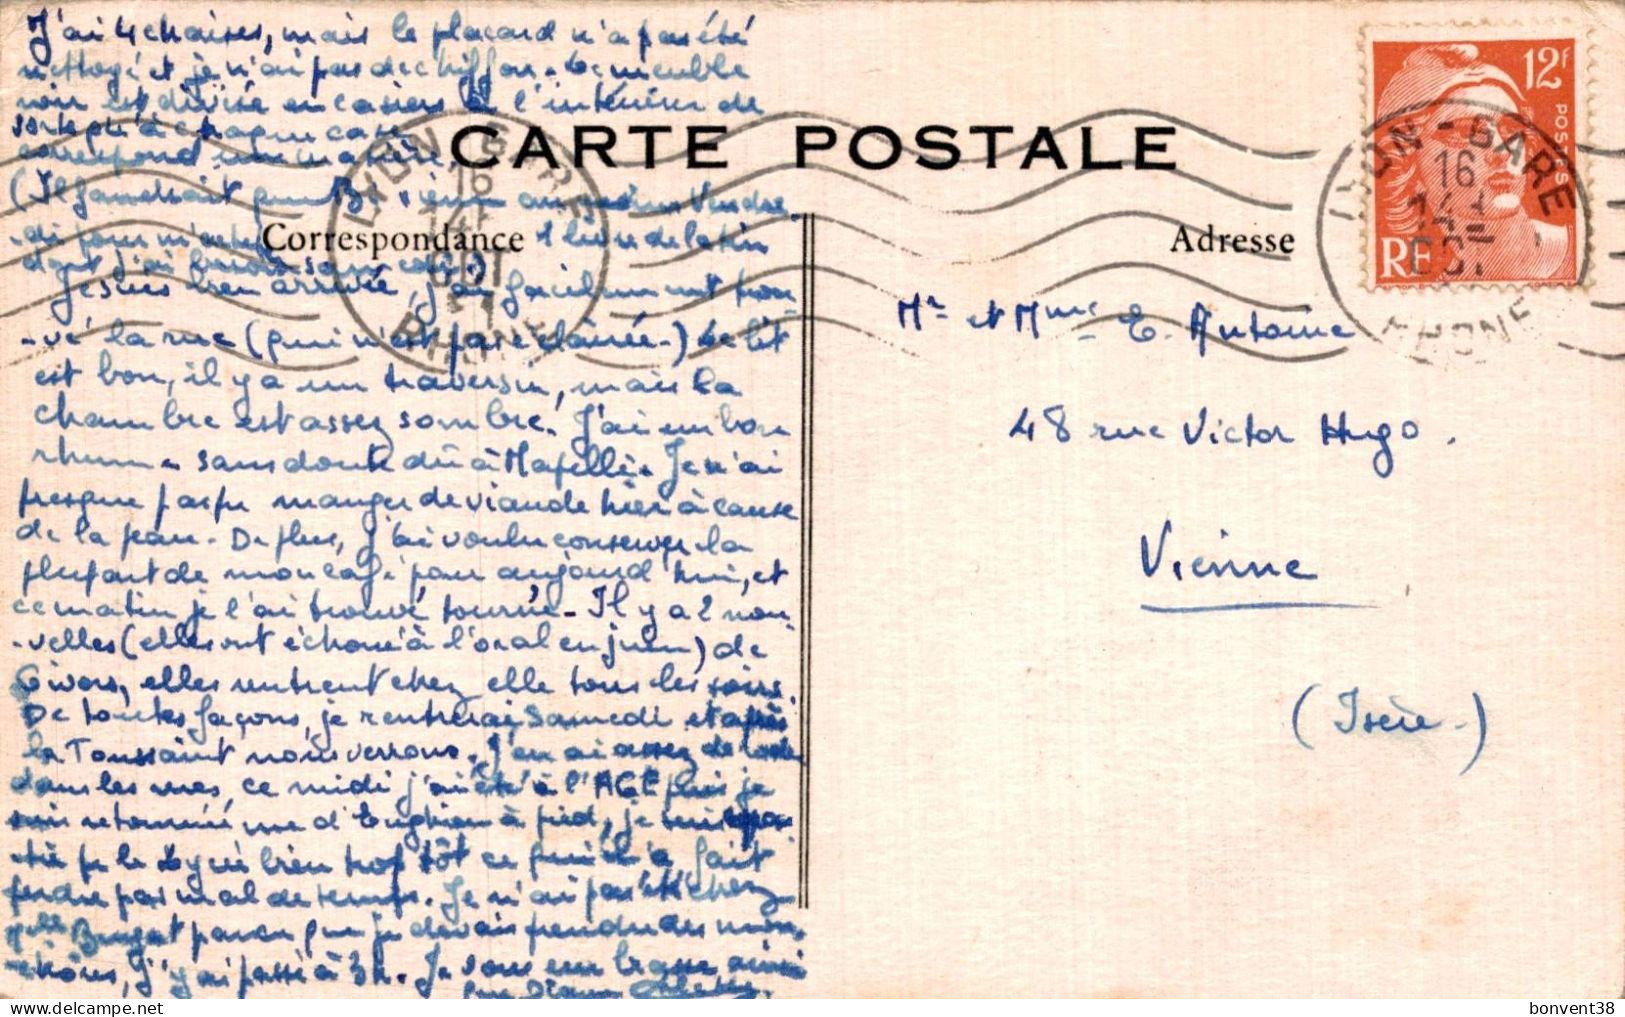 J'ai 4 chaises, mais le placard n'a pas été
nettoyé et je n'ai pas de chiffon. Le meuble
noir est divisé en casiers à l'intérieur de
sorte qu'à chaque case
correspond une matière.
(Il faudrait que
dont j'ai besoin
Je suis bien arrivée, j'ai facilement trou-
-vé la rue (qui n'est pas éclairée.) Le lit
est bon, il y a un traversin, mais la
chambre est assez sombre. J'ai un bon
rhume sans doute dû à Je n'ai
presque pas pu manger de viande hier à cause
de la peau. De plus, j'ai voulu conserver la
plupart de mon café pour aujourd'hui, et
ce matin je l'ai trouvé tourné. Il y a 2 nou-
-velles (elles ont échoué à l'oral en juin) de
Givors, elles rentrent chez elle tous les soirs.
De toutes façons, je rentrerai Samedi et après
la Toussaint nous verrons. J'en ai assez de
dans les rues, ce midi j'ai été à l'AGE puis je
suis retournée rue d'Enghien à pied, je suis
le Lycée bien trop tôt ce qui m'a fait
perdre pas mal de temps. Je n'ai pas été chez
Mlle parce que je devais prendre des
j'y ai passé à 3h. Je vous embrasse ainsi
que
CARTE POSTALE
Correspondance
Adresse
Mr et Mme E. Antoine
48 rue Victor Hugo.
Vienne
(Isère.)
12f
POSTES
RF
LYON-GARE
16
RHONE
LYON-GARE
16
OCT
RHONE
bonvent38